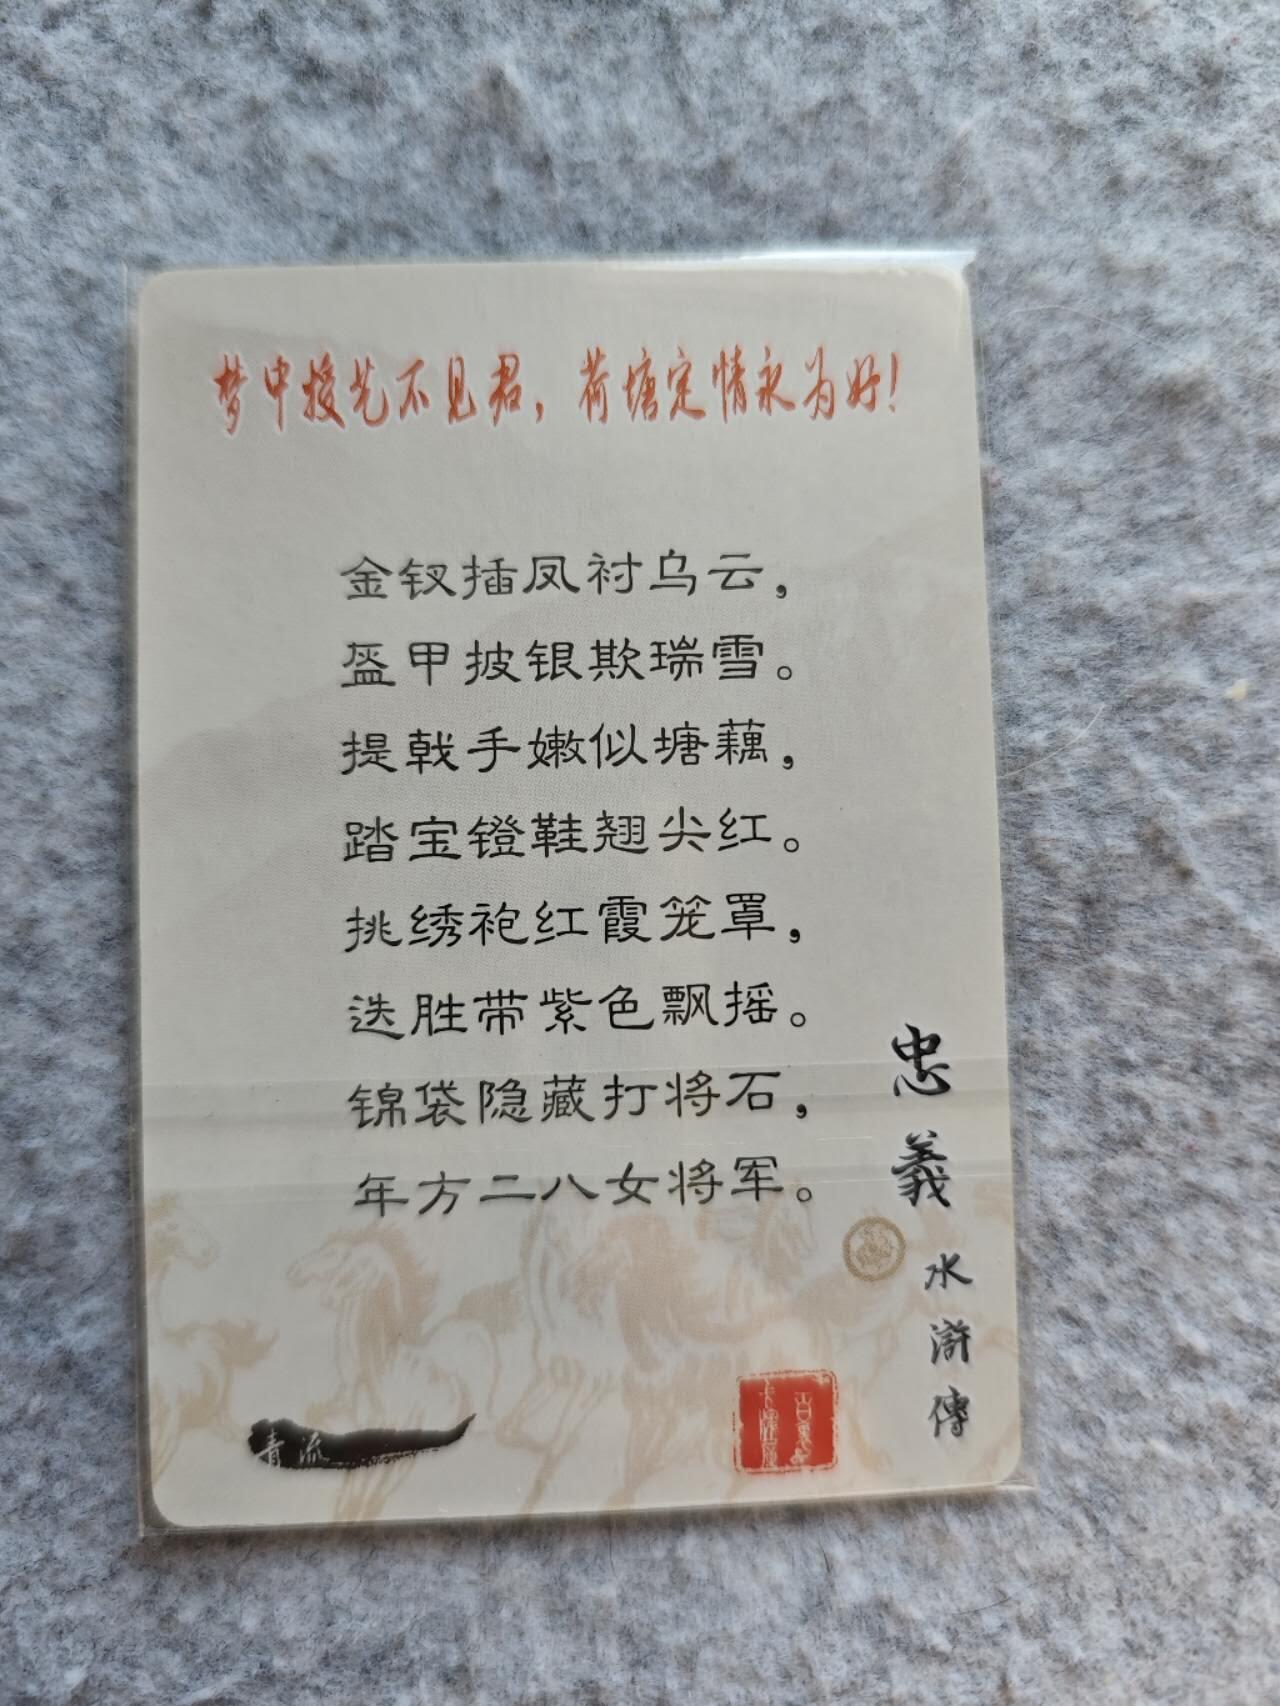 梦中授艺不见君，荷塘定情永为好！
金钗插凤衬乌云，
盔甲披银欺瑞雪。
提戟手嫩似塘藕，
踏宝镫鞋翘尖红。
挑绣袍红霞笼罩，
迭胜带紫色飘摇。
锦袋隐藏打将石，
年方二八女将军。
忠義
水滸傳
青流